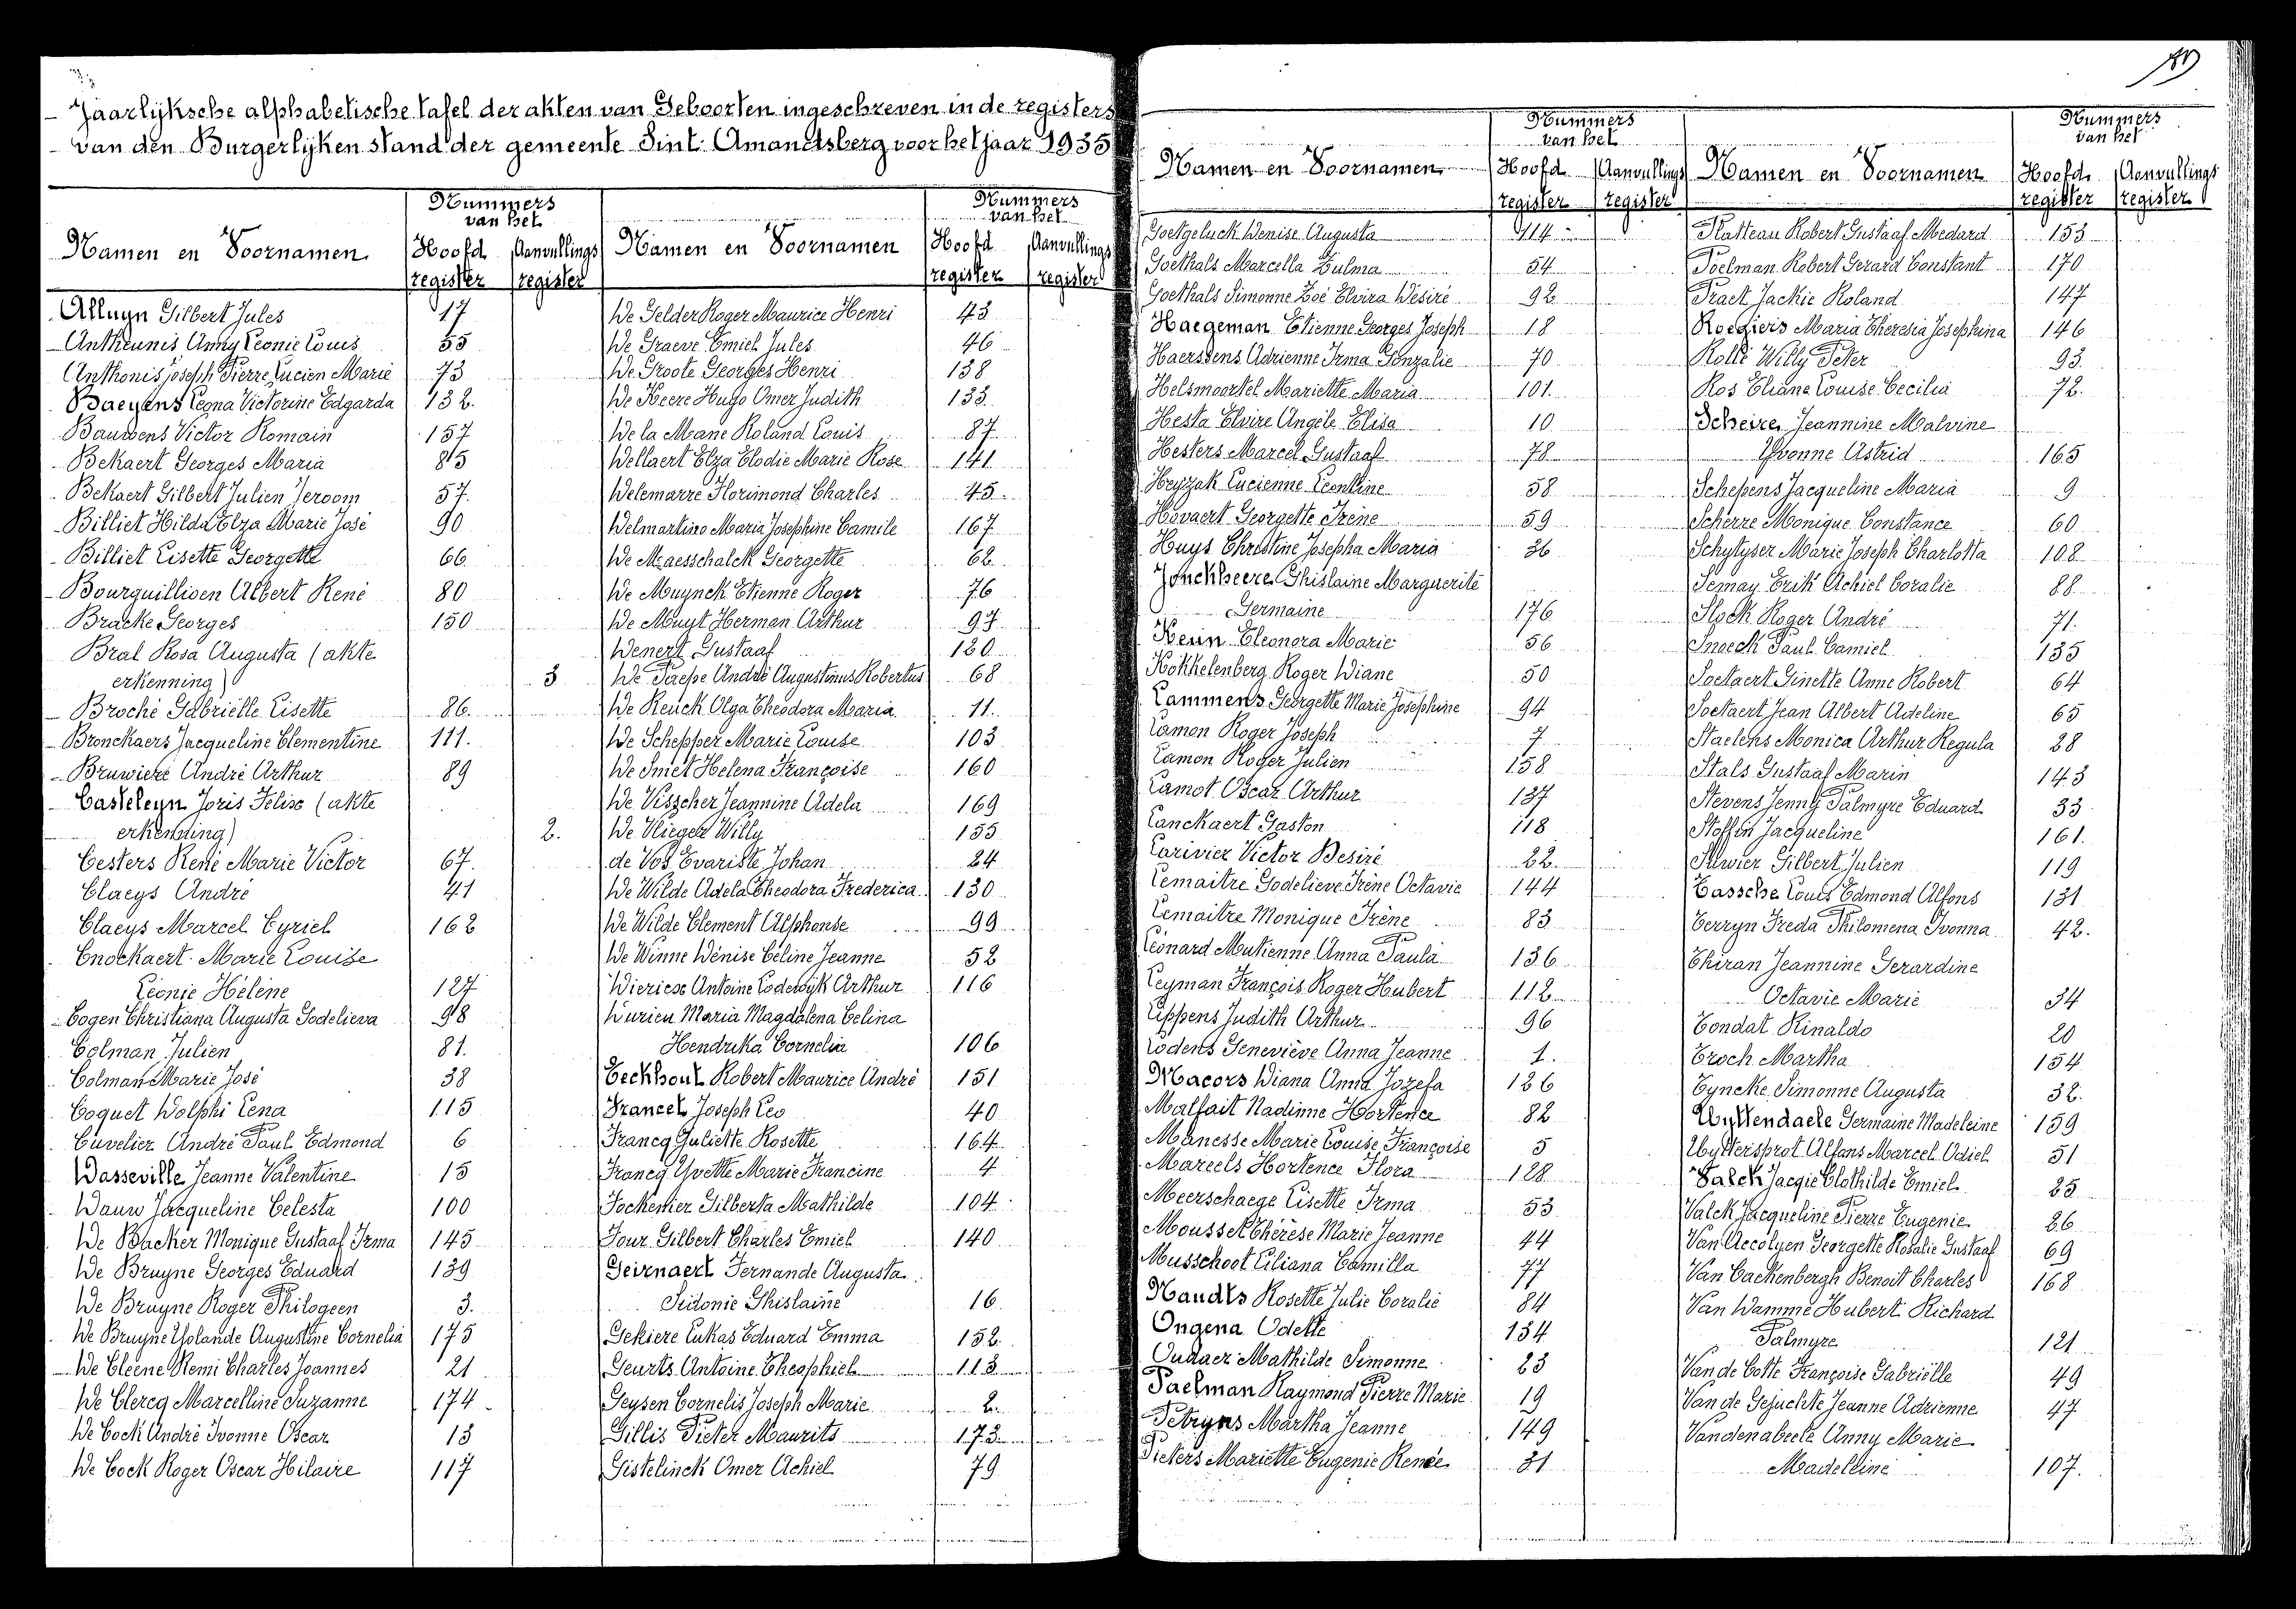 Jaarlijksche alphabetische tafel der akten van Geboorten ingeschreven in de registers
van den Burgerlijken stand der gemeente Sint. Amandsberg voor het jaar 1935
Namen en Voornamen
Nummers
van het
Hoofd
register
Aanvullings
register
Namen en Voornamen
Nummers
van het
Hoofd
register
Aanvullings
register
Alluyn Gilbert Jules 17
Antheunis Anny Leonie Louis 55
Anthonis Joseph Pierre Lucien Marie 73
Baeyens Leona Victorine Edgarda 132.
Bauwens Victor Romain 157
Bekaert Georges Maria 85
Bekaert Gilbert Julien Jeroom 57.
Billiet Hilda Elza Marie José 90
Billiet Lisette Georgette 66
Bourguillioen Albert René 80
Bracke Georges 150
Bral Rosa Augusta (akte
erkenning) 3
Broché Gabriëlle Lisette 86.
Bronckaers Jacqueline Clementine 111.
Bruwiere André Arthur 89
Casteleyn Joris Felix (akte
erkenning) 2.
Cesters René Marie Victor 67.
Claeys André 41
Claeys Marcel Cyriel 162
Cnockaert Marie Louise
Léonie Hélène 127
Cogen Christiana Augusta Godelieva 98
Colman Julien 81.
Colman Marie José 38
Coquet Dolphi Lena 115
Cuvelier André Paul Edmond 6
Dasseville Jeanne Valentine 15
Dauw Jacqueline Celesta 100
De Backer Monique Gustaaf Irma 145
De Bruyne Georges Eduard 139
De Bruyne Roger Philogeen 3.
De Bruyne Yolande Augustine Cornelia 175
De Cleene Remi Charles Joannes 21
De Clercq Marcelline Suzanne 174
De Cock André Ivonne Oscar 13
De Cock Roger Oscar Hilaire 117
De Gelder Roger Maurice Henri 43
De Graeve Emiel Jules 46
De Groote Georges Henri 138
De Keere Hugo Omer Judith 133
De la Mane Roland Louis 87
Dellaert Elza Elodie Marie Rose 141
Delemarre Florimond Charles 45.
Delmartino Maria Josephine Camile 167
De Maesschalck Georgette 62
De Muynck Etienne Roger 76
De Muyt Herman Arthur 97
Denert Gustaaf 120
De Paepe André Augustinus Robertus 68
De Reuck Olga Theodora Maria 11.
De Schepper Marie Louise 103
De Smet Helena Françoise 160
De Visscher Jeannine Adela 169
De Vlieger Willy 155
de Vos Evariste Johan 24
De Wilde Adela Theodora Frederica 130
De Wilde Clement Alphonse 99
De Winne Dénise Céline Jeanne 52
Diericx Antoine Lodewijk Arthur 116
Durieu Maria Magdalena Celina
Hendrika Cornelia 106
Eeckhout Robert Maurice André 151
Francet Joseph Leo 40
Francq Juliette Rosette 164
Francq Yvette Marie Francine 4
Fockenier Gilberta Mathilde 104
Four Gilbert Charles Emiel 140
Geirnaert Fernande Augusta
Sidonie Ghislaine 16
Gekiere Lukas Eduard Emma 152.
Geurts Antoine Theophiel 113
Geysen Cornelis Joseph Marie 2.
Gillis Pieter Maurits 173
Gistelinck Omer Achiel 79
Namen en Voornamen
Nummers
van het
Hoofd
register
Aanvullings
register
Namen en Voornamen
Nummers
van het
Hoofd
register
Aanvullings
register
Goetgeluck Denise Augusta 114
Goethals Marcella Zulma 54
Goethals Simonne Zoé Elvira Désiré 92
Haegeman Etienne Georges Joseph 18
Haerssens Adrienne Irma Gonzalie 70
Helsmoortel Mariette Maria 101.
Hesta Elvire Angèle Elisa 10
Hesters Marcel Gustaaf 78
Heyzak Lucienne Leontine 58
Hovaert Georgette Irène 59
Huys Christine Josepha Maria 36
Jonckheere Ghislaine Marguerite
Germaine 176
Kerin Eleonora Marie 56
Kokkelenberg Roger Diane 50
Lammens Georgette Marie Josephine 94
Lamon Roger Joseph 7
Lamon Roger Julien 158
Lamot Oscar Arthur 137
Lanckaert Gaston 118
Larivier Victor Desiré 22.
Lemaitre Godelieve Irène Octavie 144
Lemaitre Monique Irène 83
Léonard Mutienne Anna Paula 136
Leyman François Roger Hubert 112
Lippens Judith Arthur 96
Lodens Geneviève Anna Jeanne 1.
Macors Diana Anna Jozefa 126
Malfait Nadinne Hortence 82
Manesse Marie Louise Françoise 5
Mareels Hortence Flora 128
Meerschaege Lisette Irma 53
Mousset Thérèse Marie Jeanne 44
Musschoot Liliana Camilla 77
Naudts Rosette Julie Coralie 84
Ongena Odette 134
Oudaer Mathilde Simonne 23
Paelman Raymond Pierre Marie 19
Petryns Martha Jeanne 149
Pieters Mariette Eugenie Renée 31
Platteau Robert Gustaaf Medard 153
Poelman Robert Gerard Constant 170
Praet Jackie Roland 147
Roegiers Maria Theresia Josephina 146
Rolle Willy Peter 93
Ros Eliane Louise Cecilia 72.
Scheire Jeannine Malvine
Yvonne Astrid 165
Schepens Jacqueline Maria 9
Scherre Monique Constance 60
Schytyser Marie Joseph Charlotta 108
Semay Erik Achiel Coralie 88
Slock Roger André 71.
Snoeck Paul Camiel 135
Soetaert Ginette Anne Robert 64
Soetaert Jean Albert Adeline 65
Staelens Monica Arthur Regula 28
Stals Gustaaf Marin 143
Stevens Jenny Palmyre Eduard 33
Stoffin Jacqueline 161.
Gilbert Julien 119
Tassche Louis Edmond Alfons 131
Terryn Freda Philomena Ivonna 42.
Thiran Jeannine Gerardine
Octavie Marie 34
Tondat Rinaldo 20
Troch Martha 154
Tyncke Simonne Augusta 32.
Uyttendaele Germaine Madeleine 159
Uyttersprot Alfons Marcel Odiel 51
Valck Jacqie Clothilde Emiel 25
Valck Jacqueline Pierre Eugenie 26
Van Accolyen Georgette Rosalie Gustaaf 69
Van Cackenbergh Benoit Charles 168
Van Damme Hubert Richard
Palmyre 121
Van de Cotte Françoise Gabriëlle 49
Van de Gejuchte Jeanne Adrienne 47
Vandenabeele Anny Marie
Madeleine 107.